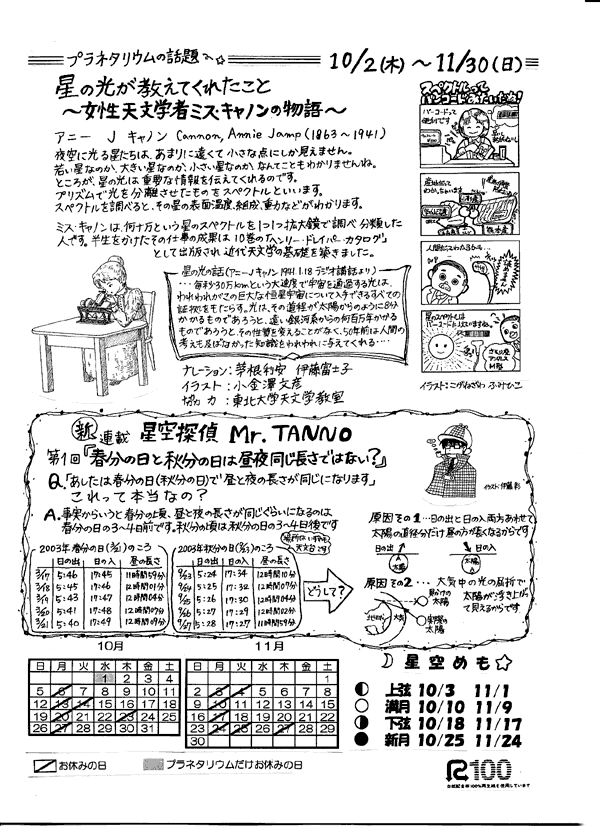 プラネタリウムの話題
10/2(木)～11/30(日)
星の光が教えてくれたこと
～女性天文学者ミス・キャノンの物語～
アニー J キャノン Cannon, Annie Jamp (1863～1941)
夜空に光る星たちは、あまりに遠くて小さな点にしか見えません。
若い星なのか、大きい星なのか、小さい星なのか、なんてこともわかりませんね。
ところが、星の光は重要な情報を伝えてくれるのです。
プリズムで光を分離させたものをスペクトルといいます。
スペクトルを調べると、その星の表面温度、組成、重力などがわかります。
ミス・キャノンは、何十万という星のスペクトルを1つ1つ拡大鏡で調べ分類した
人です。半生をかけたその仕事の成果は10巻の「ヘンリー・ドレイパーカタログ」
として出版され近代天文学の基礎を築きました。
星の光の話(アニーJキャノン1941.1.18ラジオ講話より)
…毎秒30万kmという大速度で宇宙を通過する光は、
われわれがこの巨大な恒星宇宙について入手できるすべての
証拠をもたらす。光は、その道程が太陽からのように8分
かかるものであろうと、遠い銀河系からの何百万年かかる
ものであろうと、その性質を変えることがなく、50年前は人間の
考えも及ばなかった知識をわれわれに与えてくれる…
ナレーション:茅根利安 伊藤富士子
イラスト:小金澤文彦
協力:東北大学天文学教室
スペクトルって
バーコードみたいだね!
バーコードって
便利です
人間だってわかるかも…
星のスペクトルは
バーコードによくにていますね。
イラスト:こがねざわ ふみひこ
新連載 星空探偵 Mr. TANNO
第1回『春分の日と秋分の日は昼夜同じ長さではない?』
Q.「あしたは春分の日(秋分の日)で昼と夜の長さが同じになります」
これって本当なの?
A.事実からいうと春分の頃、昼と夜の長さが同じぐらいになるのは
春分の日の3～4日前です。秋分の頃は秋分の日の3～4日後です
イラスト伊藤彰
2003年春分の日(3/21)のころ
日の出 日の入 昼の長さ
3/17 5:46 17:45 11時間59分
3/18 5:45 17:46 12時間01分
3/19 5:43 17:47 12時間04分
3/20 5:41 17:48 12時間07分
3/21 5:40 17:49 12時間09分
2003年秋分の日(9/23)のころ
日の出 日の入 昼の長さ
9/23 5:24 17:34 12時間10分
9/24 5:25 17:32 12時間07分
9/25 5:26 17:30 12時間04分
9/26 5:27 17:29 12時間02分
9/27 5:28 17:27 11時間59分
どうして?
原因その1…日の出と日の入両方あわせて
太陽の直径分だけ昼の方が長くなるからです
日の出 日の入
太陽 太陽
原因その2… 大気中の光の屈折で
太陽が浮き上がって
見えるからです
見かけの
太陽
実際の
太陽
大気
10月
日 月 火 水 木 金 土
1 2 3 4
5 6 7 8 9 10 11
12 13 14 15 16 17 18
19 20 21 22 23 24 25
26 27 28 29 30 31
11月
日 月 火 水 木 金 土
1
2 3 4 5 6 7 8
9 10 11 12 13 14 15
16 17 18 19 20 21 22
23 24 25 26 27 28 29
30
お休みの日
プラネタリウムだけお休みの日
星空めも
上弦 10/3 11/1
満月 10/10 11/9
下弦 10/18 11/17
新月 10/25 11/24
R100
古紙配合率100%再生紙を使用しています